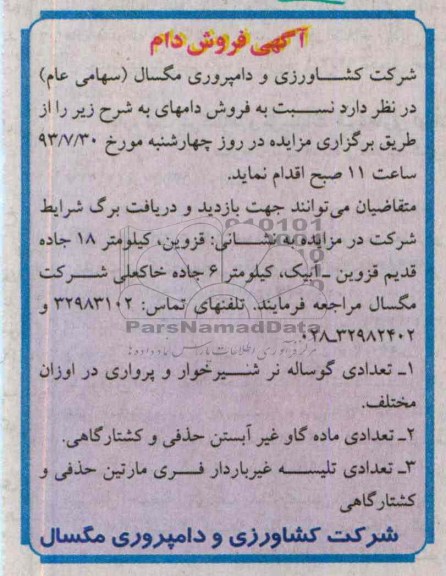 آگهی فروش دام
شرکت کشـــاورزی و دامپروری مگسال (سهامی عام)
در نظر دارد نســـبت به فروش دامهای به شرح زیر را از
طریق برگزاری مزایده در روز چهارشنبه مورخ ۹۳/۷/۳۰
ساعت ۱۱ صبح اقدام نماید.
متقاضیان می‌توانند جهت بازدید و دریافت برگ شرایط
شرکت در مزایده به نشـــانی: قزوین، کیلومتر ۱۸ جاده
قدیم قزوین ـ آبیک، کیلومتر ۶ جاده خاکعلی شـــرکت
مگسال مراجعه فرمایند. تلفنهای تماس: ۳۲۹۸۳۱۰۲ و
۳۲۹۸۲۴۰۲ـ۰۲۸
ParsNamadData
۱ـ تعدادی گوساله نر شـــیرخوار و پرواری در اوزان
مختلف.
۲ـ تعدادی ماده گاو غیر آبستن حذفی و کشتارگاهی.
۳ـ تعدادی تلیســـه غیرباردار فـــری مارتین حذفی و
کشتارگاهی
شرکت کشاورزی و دامپروری مگسال